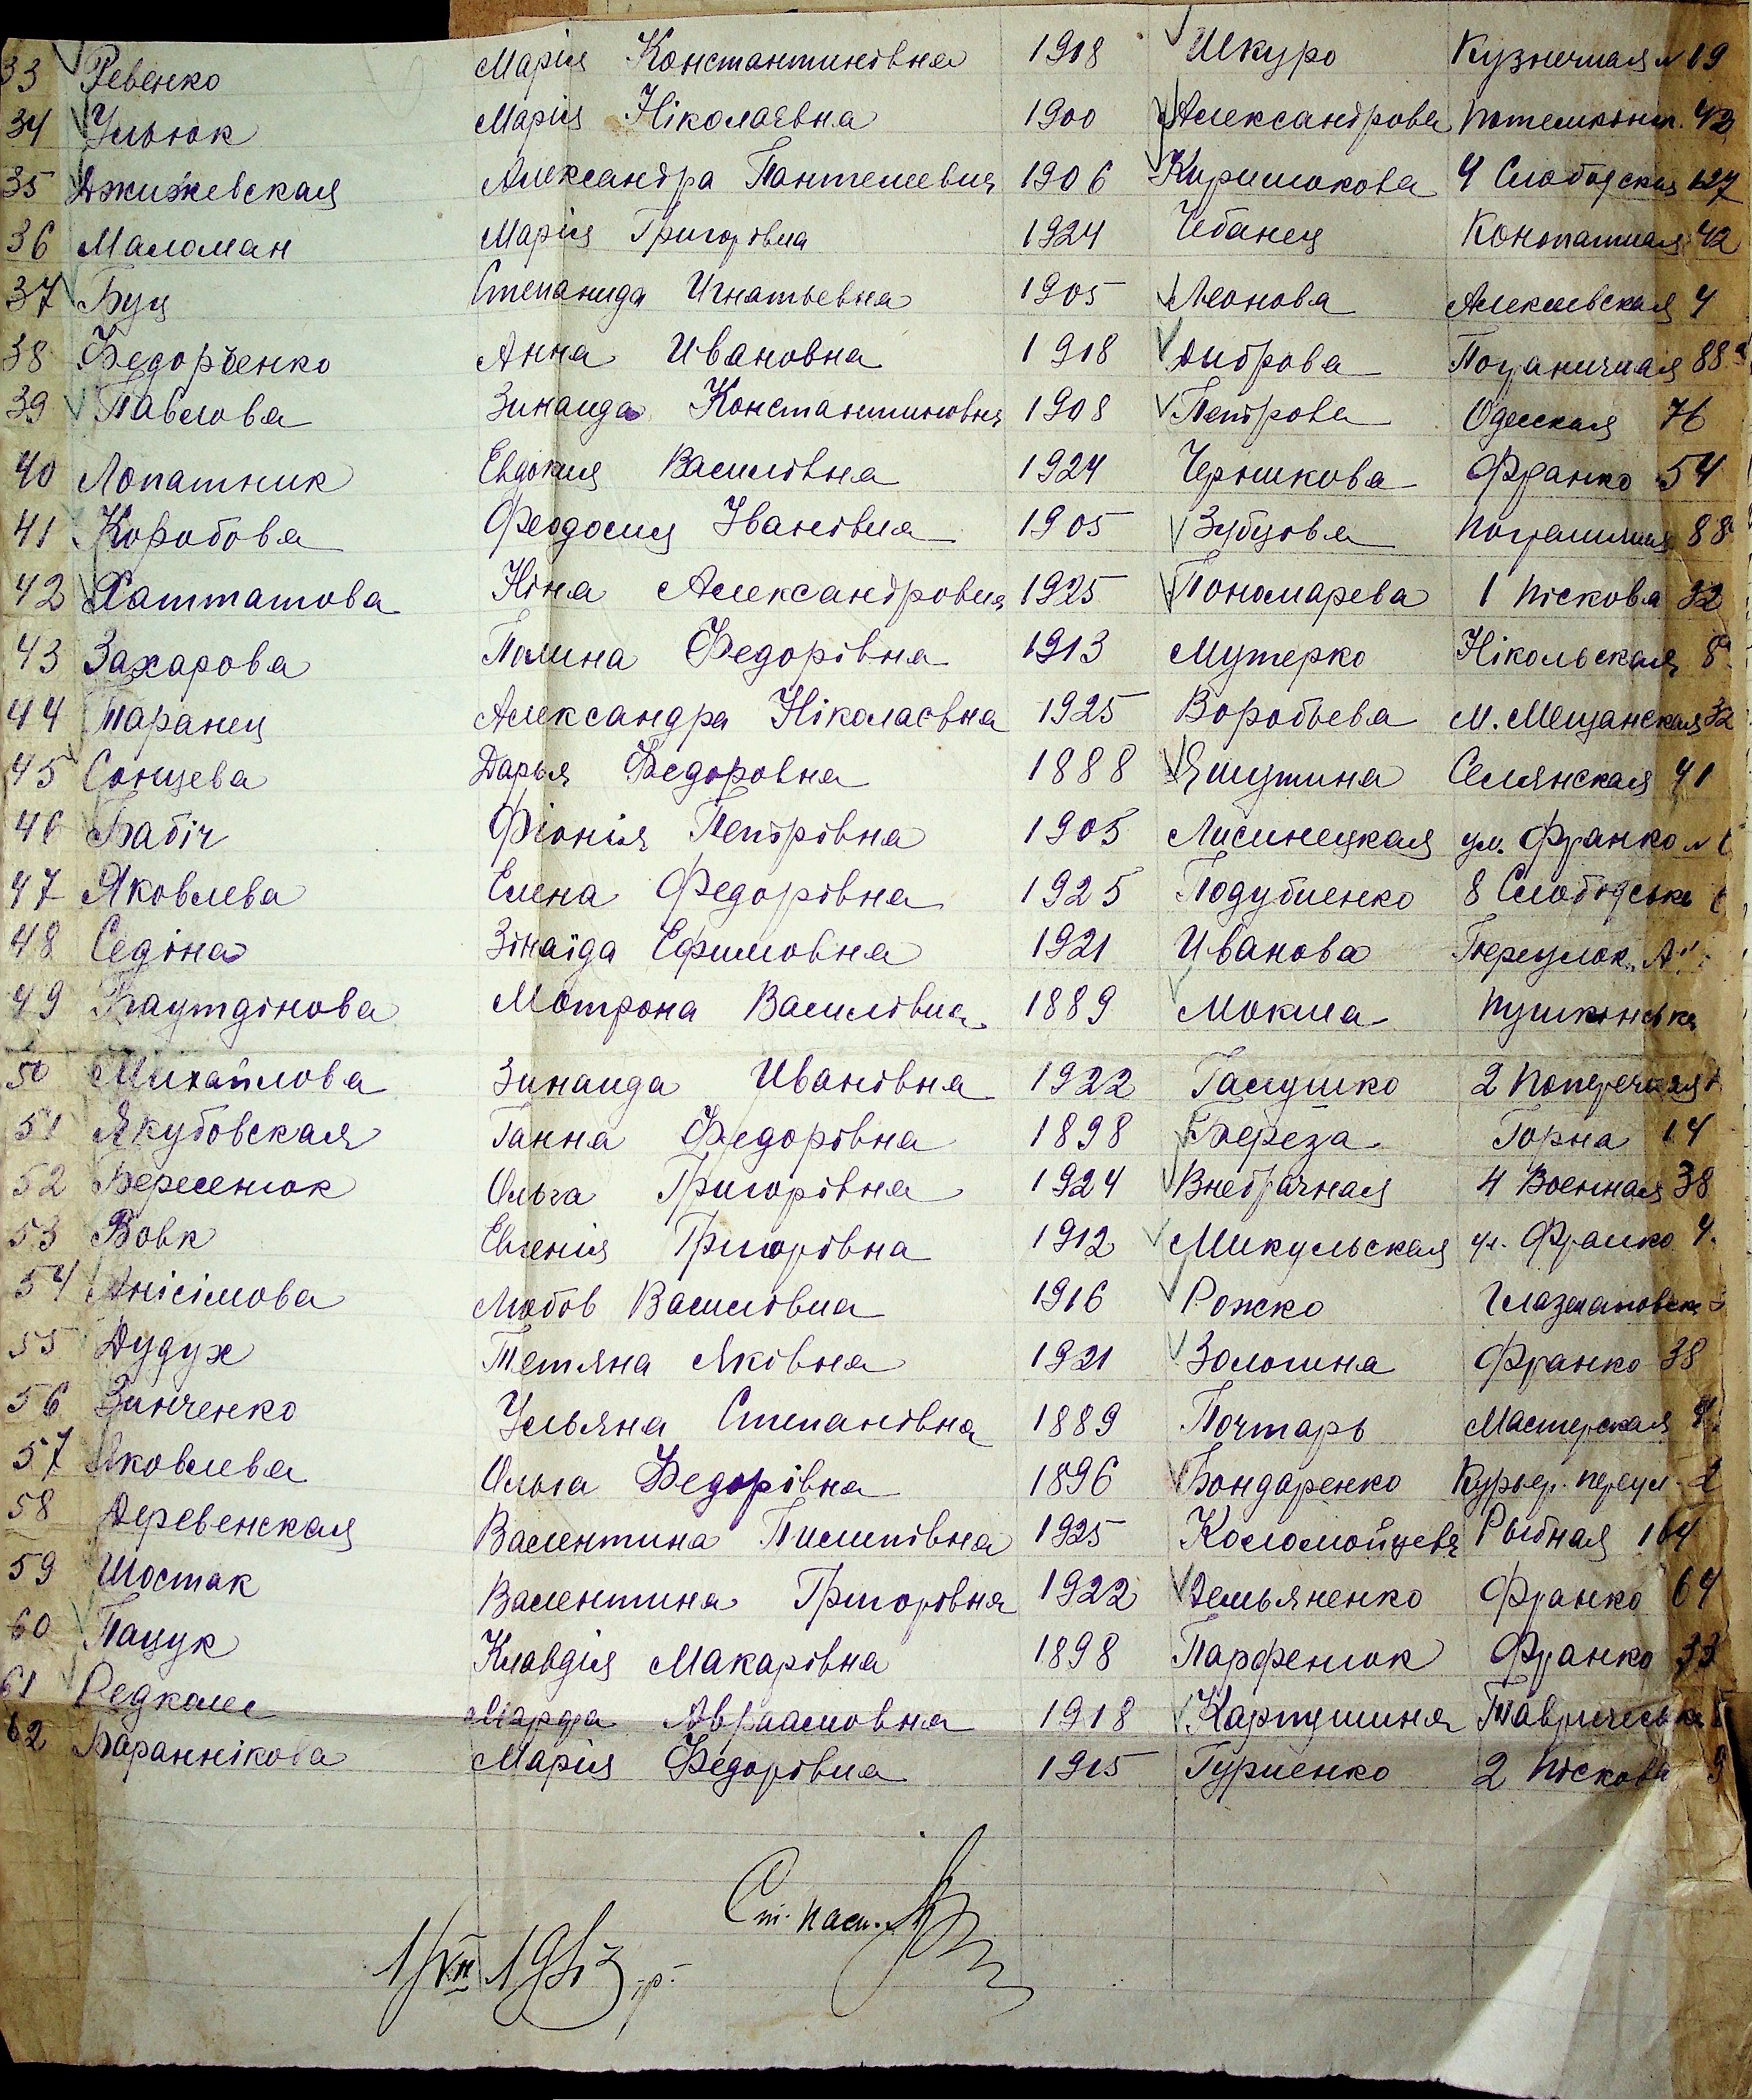 33 Ревенко Марія Константинівна 1918 Шкуро Кузнечная № 19
34 Ульюк Марія Ніколаєвна 1900 Александрова Потемкінт. 42
35 Джижевская Александра Пантелеевна 1906 Киришокова 4 Слободская 127
36 Маломан Марія Григорівна 1924 Чебанец Конопатная 42
37 Буц Степанида Игнатьевна 1905 Леонова Алексеевская 4
38 Федорченко Анна Ивановна 1918 Диброва Пограничная 88а
39 Павлова Зинаида Константиновна 1908 Петрова Одесская 76
40 Лопатник Евдокия Василівна 1924 Черникова Франко 54
41 Коробова Феодосия Івановна 1905 Зубцова Пограничная 88
42 Ніна Александровна 1925 Пономарева 1 Піскова 32
43 Захарова Полина Федорівна 1913 Мутерко Нікольская 8
44 Таранец Александра Ніколаєвна 1925 Воробьева М. Мещанская 32
45 Сонцева Дарья Федоровна 1888 Яшутина Селянская 41
46 Бабіч Фіонія Петрівна 1905 Лисинецкая ул. Франко №
47 Яковлева Елена Федорівна 1925 Поддубненко 8 Слободська
48 Седіна Зінаїда Ефимовна 1921 Иванова Переулок „А"
49 Баутдінова Мотрона Василівна 1889 Мокина Пушкінська
50 Михайлова Зинаида Ивановна 1922 Галушко 2 Поперечная
51 Якубовская Ганна Федорівна 1898 Береза Горна 14
52 Береснюк Ольга Григорівна 1924 Внебрачная 4 Военная 38
53 Вовк Евгенія Григорівна 1912 Микульская ул. Франко 4
54 Анісімова Любов Василівна 1916 Рожко
55 Дудух Тетяна Яківна 1921 Золотина Франко 38
56 Зинченко Ульяна Степанівна 1889 Почтарь Мастерская
57 Яковлева Ольга Федорівна 1896 Бондаренко Курьер. переул. 2
58 Деревенская Валентина Пилипівна 1925 Коломойцева Рыбная 164
59 Шостак Валентина Григорівна 1922 Демьяненко Франко 64
60 Пацук Клавдія Макарівна 1898 Парфенюк Франко 33
61 Марфа Авраамовна 1918 Картушина Таврическа
62 Бараннікова Марія Федорівна 1915 Гуриенко 2 Піскова 9
Ст. пасп.
1/VII 1943 р.